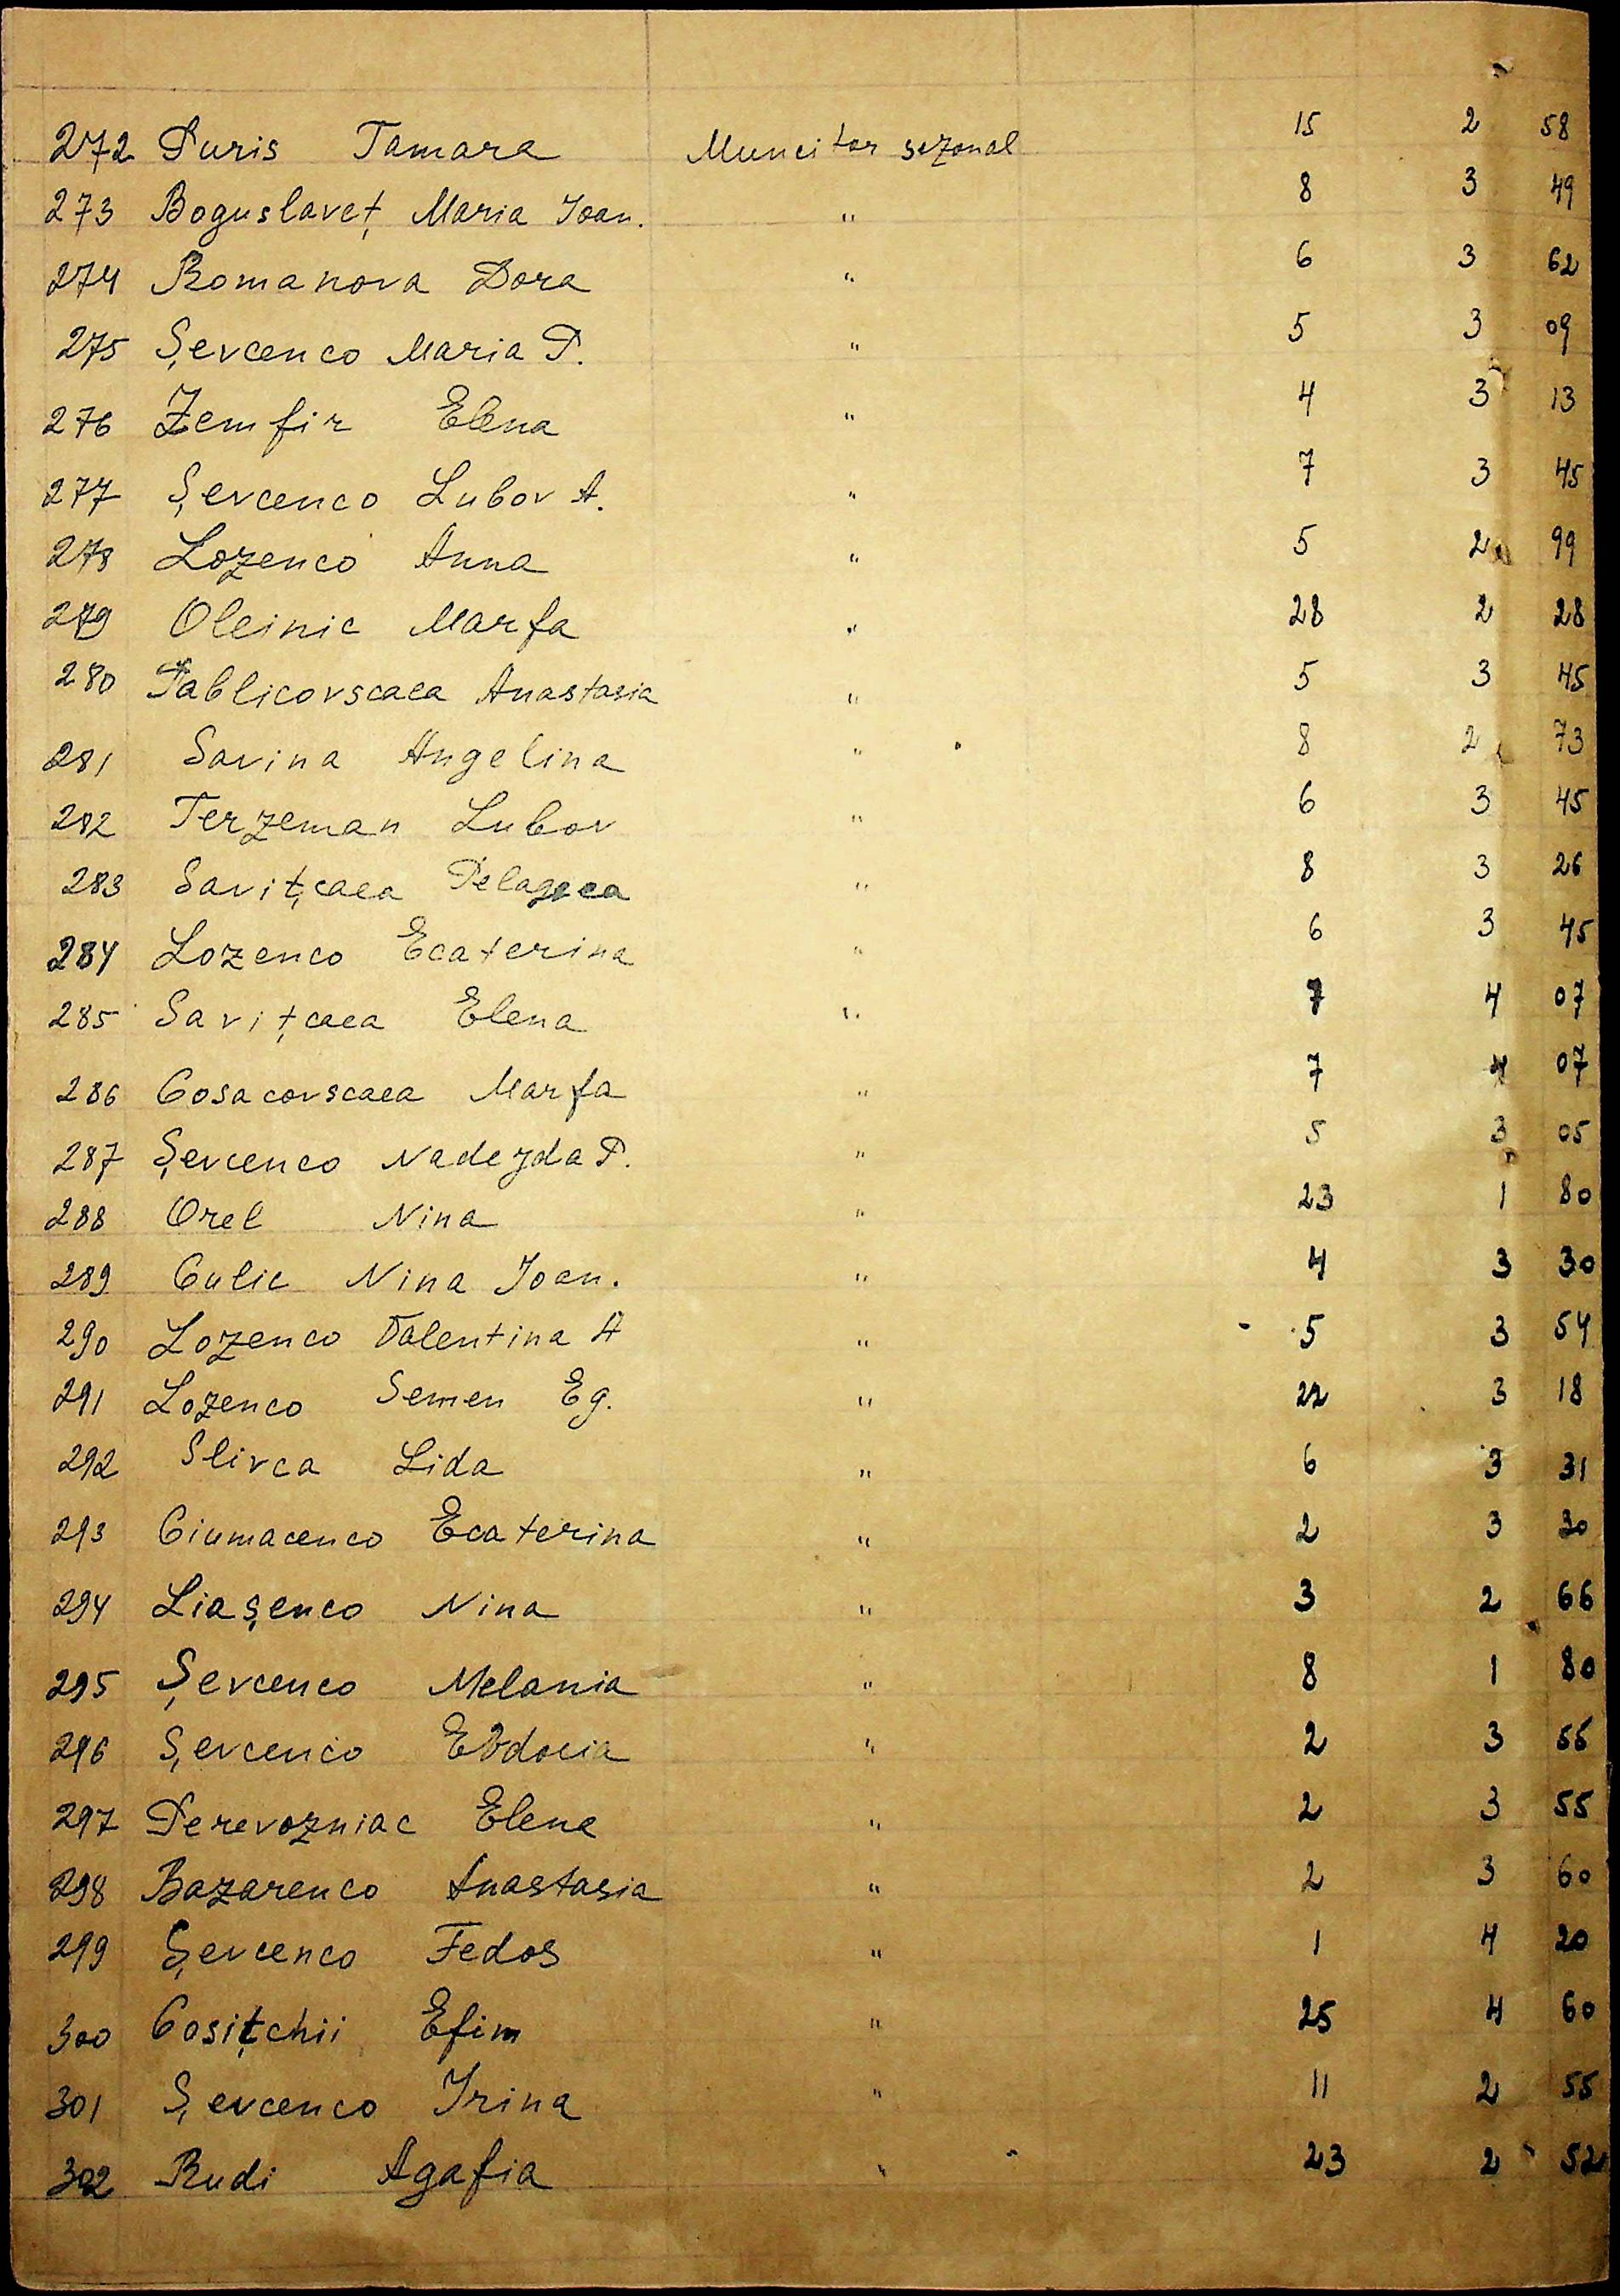 272 Puris Tamara Muncitor sezonal 15 2 58
273 Boguslaveț Maria Ioan. " 8 3 49
274 Romanova Dora " 6 3 62
275 Șevcenco Maria P. " 5 3 09
276 Zemfir Elena " 4 3 13
277 Șevcenco Lubov A. " 7 3 45
278 Lozenco Anna " 5 2 99
279 Oleinic Marfa " 28 2 28
280 Pablicovscaea Anastasia " 5 3 45
281 Savina Angelina " 8 2 73
282 Terzeman Lubov " 6 3 45
283 Savițcaea Pelagea " 8 3 26
284 Lozenco Ecaterina " 6 3 45
285 Savițcaea Elena " 7 4 07
286 Cosacovscaea Marfa " 7 4 07
287 Șevcenco Nadejda P. " 5 3 05
288 Orel Nina " 23 1 80
289 Culic Nina Ioan. " 4 3 30
290 Lozenco Valentina A " 5 3 54
291 Lozenco Semen Eg. " 22 3 18
292 Slivca Lida " 6 3 31
293 Ciumacenco Ecaterina " 2 3 30
294 Liașenco Nina " 3 2 66
295 Șevcenco Melania " 8 1 80
296 Șevcenco Evdocia " 2 3 55
297 Perevozniac Elena " 2 3 55
298 Bazarenco Anastasia " 2 3 60
299 Șevcenco Fedos " 1 4 20
300 Cosițchii Efim " 25 4 60
301 Șevcenco Irina " 11 2 55
302 Rudi Agafia " 23 2 52